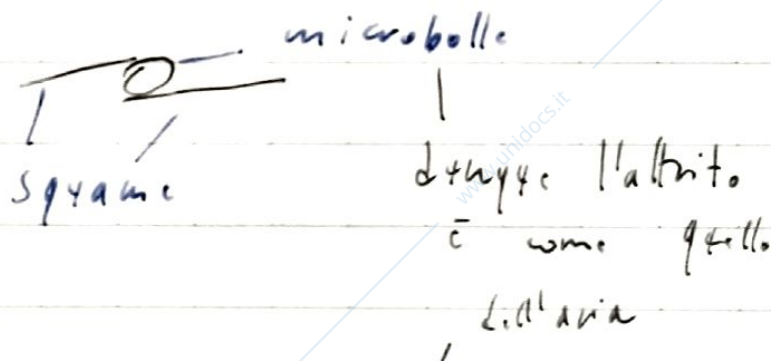 microbolle
squame
dunque l'attrito
è come quello
dell'aria
www.unidocs.it